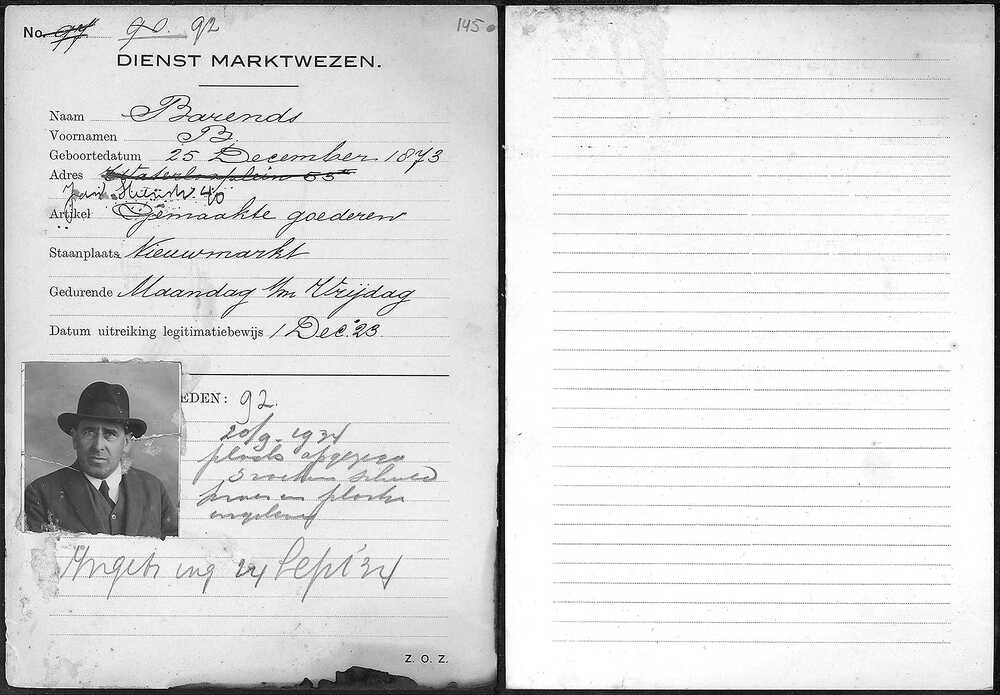 No. 97 90. 92
145
DIENST MARKTWEZEN.
Naam Barends
Voornamen B.
Geboortedatum 25 December 1873
Adres Waterlooplein 65
Jan Steenstr 40
Artikel Gemaakte goederen
Staanplaats Nieuwmarkt
Gedurende Maandag t/m Vrijdag
Datum uitreiking legitimatiebewijs 1 Dec. '23.
EDEN: 92.
20/9 - 1934
plaats opgezegd
3 weken schuld
en plaats
Z. O. Z.